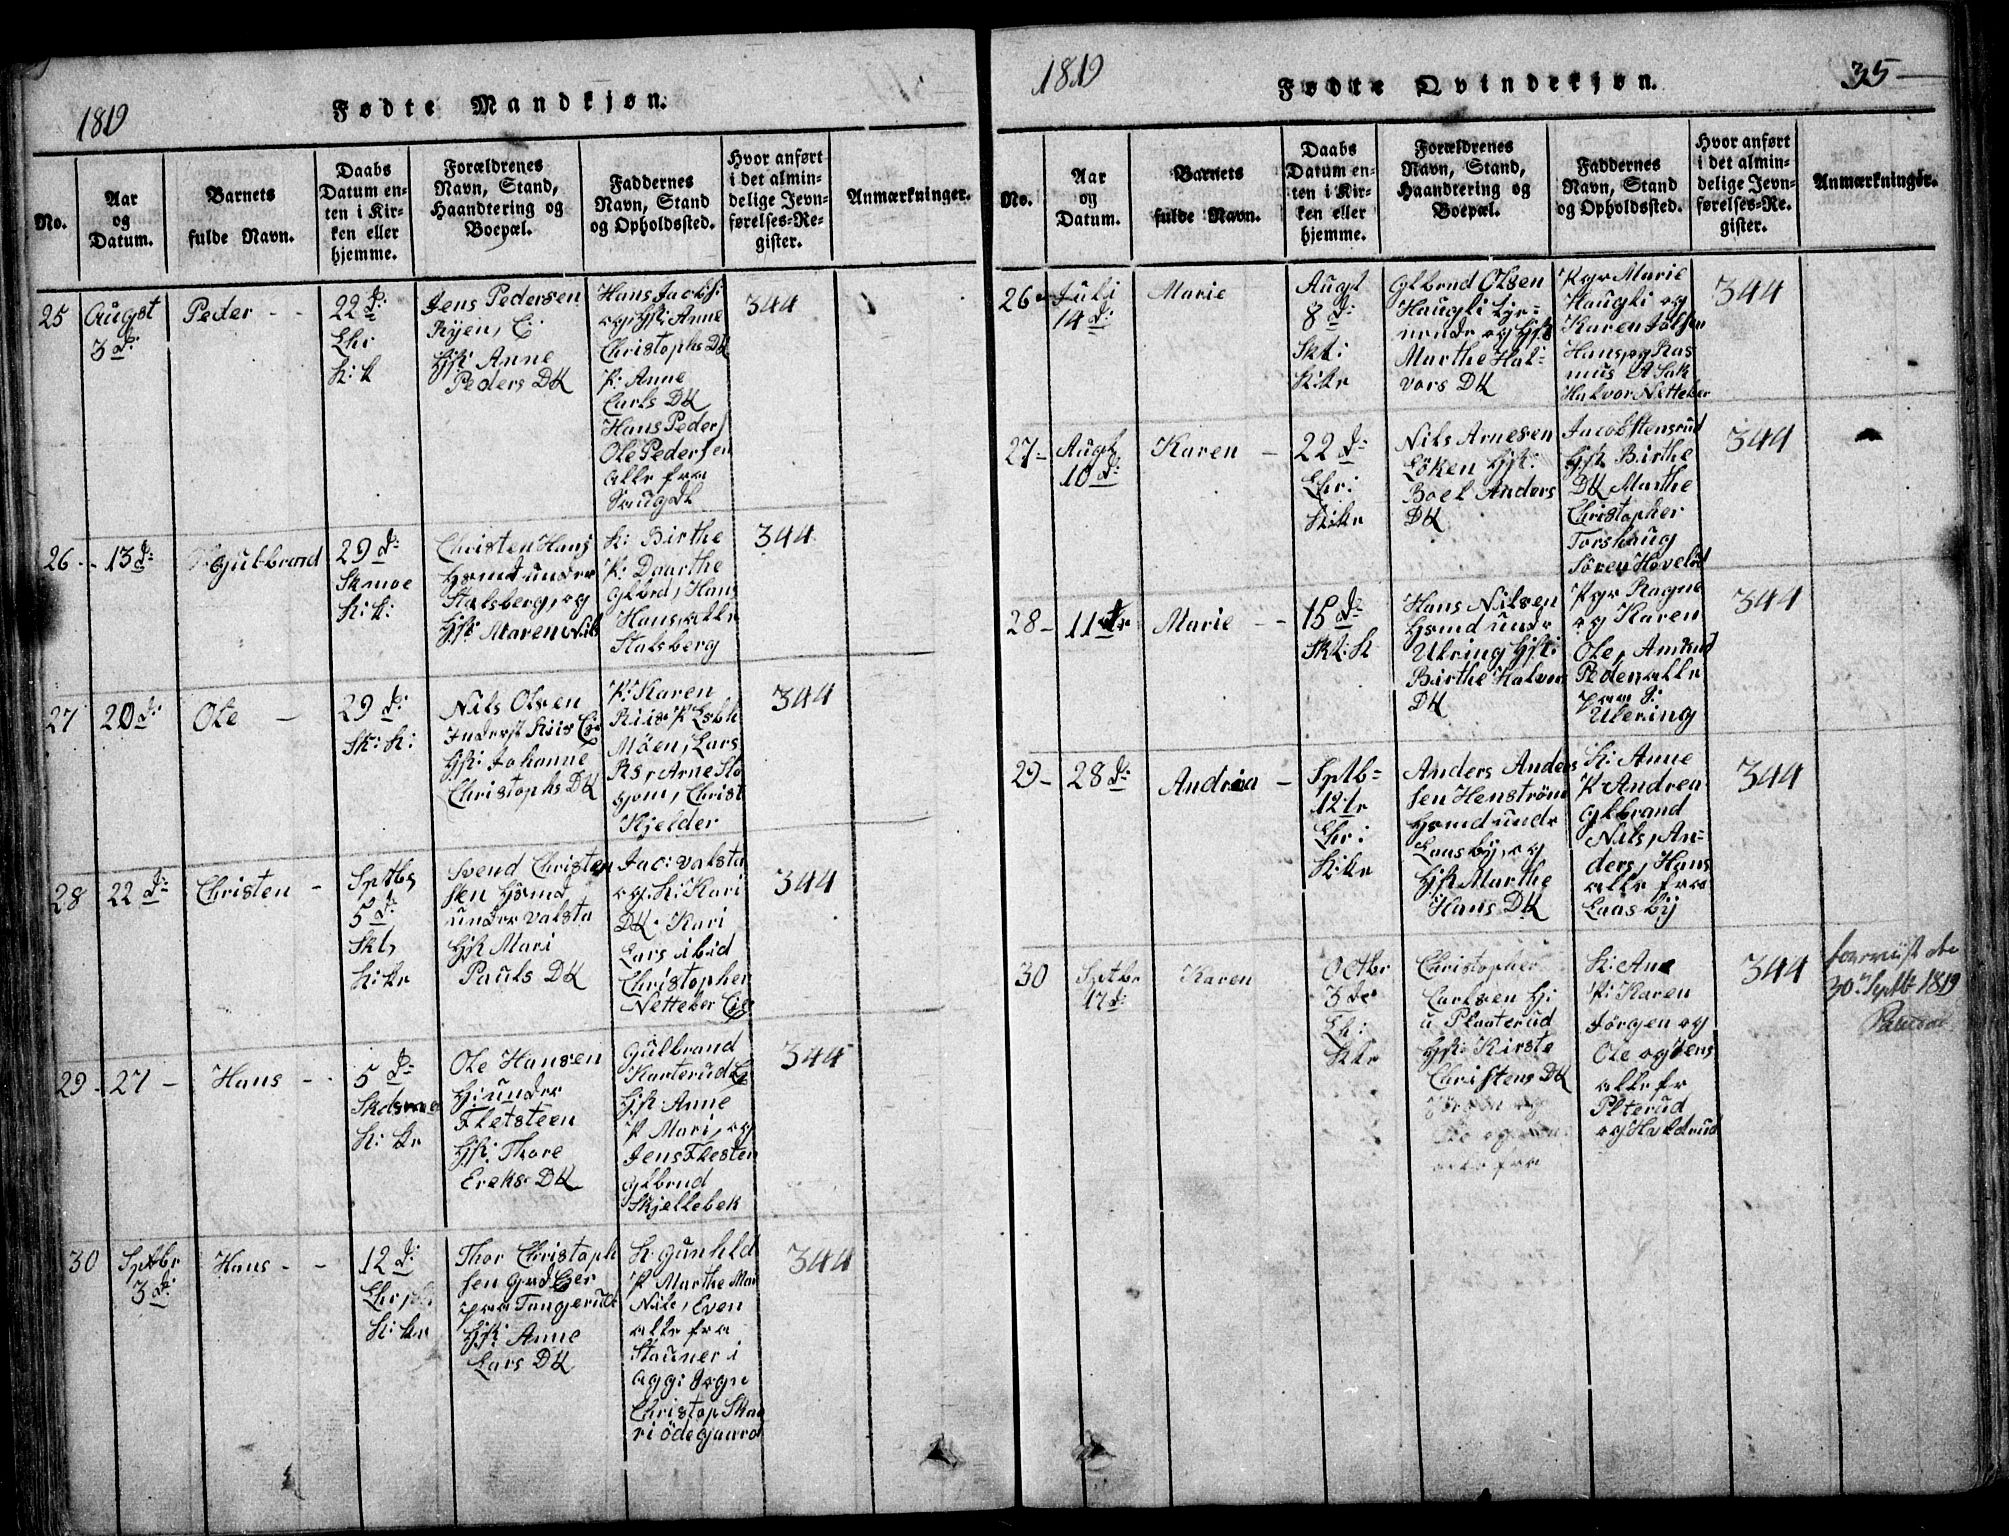 1819
Fødte Mandkjøn.
No.
Aar
og
Datum.
Barnets
fulde Navn.
Daabs
Datum en-
ten i Kir-
ken eller
hjemme.
Forældrenes
Navn, Stand,
Haandtering og
Boepæl.
Faddernes
Navn, Stand
og Opholdssted.
Hvor anført
i det almin-
delige Jevn-
førelses-Re-
gister.
Anmærkninger.
25
Augst
3 d:
Peder - -
22 d:
Chr
k: k
Jens Pedersen
Ryen, E:
Hst: Anne
Peders DK
Hans Jacobs:
og Hst: Anne
Christophs DK
P: Anne
Carls DK
Hans Peders
Ole Pedersen
alle fra
344
26 -
13 d:
Gulbrand
29 d:
Skmoe
k: k:
Christen Hans
Hsmd under
Stalsberg, og
Hst: Maren Nils
K: Birthe
P: Daarthe
Glbrd, Hans
Hans, alle
Stalsberg
344
27
20 d:
Ole -
29 d:
Sk: k:
Nils Olsen
Inderst Riis
Hst: Johanne
Christophs DK
P: Karen
Riis P Lsbh
Möen, Lars
Rs, Arne Sto
gjom, Christ
Kjelder
344
28
22 d:
Christen -
Sptbr
5 d:
Skts
k: kr
Svend Christen
sen Hsmd
under Valsta
Hst Mari
Pauls DK
Jac: Valsta
og K: Kari
DK. Kari
Lars ibid
Christopher
Netteber
344
29 -
27 -
Hans - -
5 d:
Skdsmoe
k: kr
Ole Hansen
H: under
Fletsteen
Hst: Thore
Ereks DK
Gulbrand
Karterud
Hst: Anne
P Mari, og
Jens Flesten
Glbrnd
Skjellebek
344
30
Sptbr
3 d:
Hans - -
12 d:
Chr
k: kr
Thor Christoph
sen Grd
paa Tangerud
Hst: Anne
Lars DK
K: Gunhld
P Marthe Mar
Nils, Even
alle fra
Stauner i
Agg: Jrgn
Christop Skaa
ri Ödegaard
344
1819
Fødte Qvindekjøn.
35
No.
Aar
og
Datum.
Barnets
fulde Navn.
Daabs
Datum en-
ten i Kir-
ken eller
hjemme.
Forældrenes
Navn, Stand,
Haandtering og
Boepæl.
Faddernes
Navn, Stand
og Opholdssted.
Hvor anført
i det almin-
delige Jevn-
førelses-Re-
gister.
Anmærkninger.
26 -
Juli
14 d:
Marie
Augt
8 d:
Skt:
k: kr
Glbrnd Olsen
Haugli
og Hst
Marthe Hal-
vors DK
Pgr Marie
Haugli og
Karen Jölsen
Hans, og Ras
mus
Halvor Netteber
344
27 -
Augt
10 d:
Karen -
22 d:
Chr:
k: kr
Nils Arnesen
Löken Hst:
Boel Anders
DK
Jacob Stensrud
Hst Birthe
DK Marthe
Christopher
Torshaug
Sören Hovelsd
344
28 -
11te
Marie - -
15 d:
Skt: k
Hans Nilsen
Hsmd undr
Ulring Hst:
Birthe Halvor
DK
Pgr Ragne
og Karen
Ole, Amund
Peder, alle
paa
Ulering
344
29 -
28 d:
Andrea -
Sptb-
12te
Chr:
k: kr
Anders Anders
sen Henström
Hsmd undr
Laasby, og
Hst Marthe
Hans DK
K: Anne
P Andrea
Glbrand
Nils, An-
ders, Hans
alle fra
Laasby
344
30
Sptbr
17 d:
Karen
Octbr
3 de
Ch:
k kr
Christopher
Carlsen H:
u Plaaterud
Hst: Kirste
Christens DK
alle fra
K: Ane
P: Karen
Jörgen og
Ole og Jens
alle fr
Plterud
og Hvldrud
344
30 Sptb: 1819